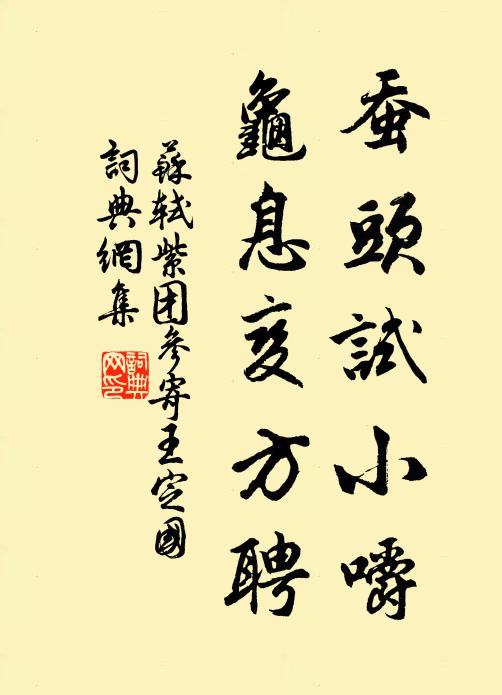 蚕頭試小嚼
龜息変方聘
蘇軾紫团參寄王定國
詞典網集
詞典
网印